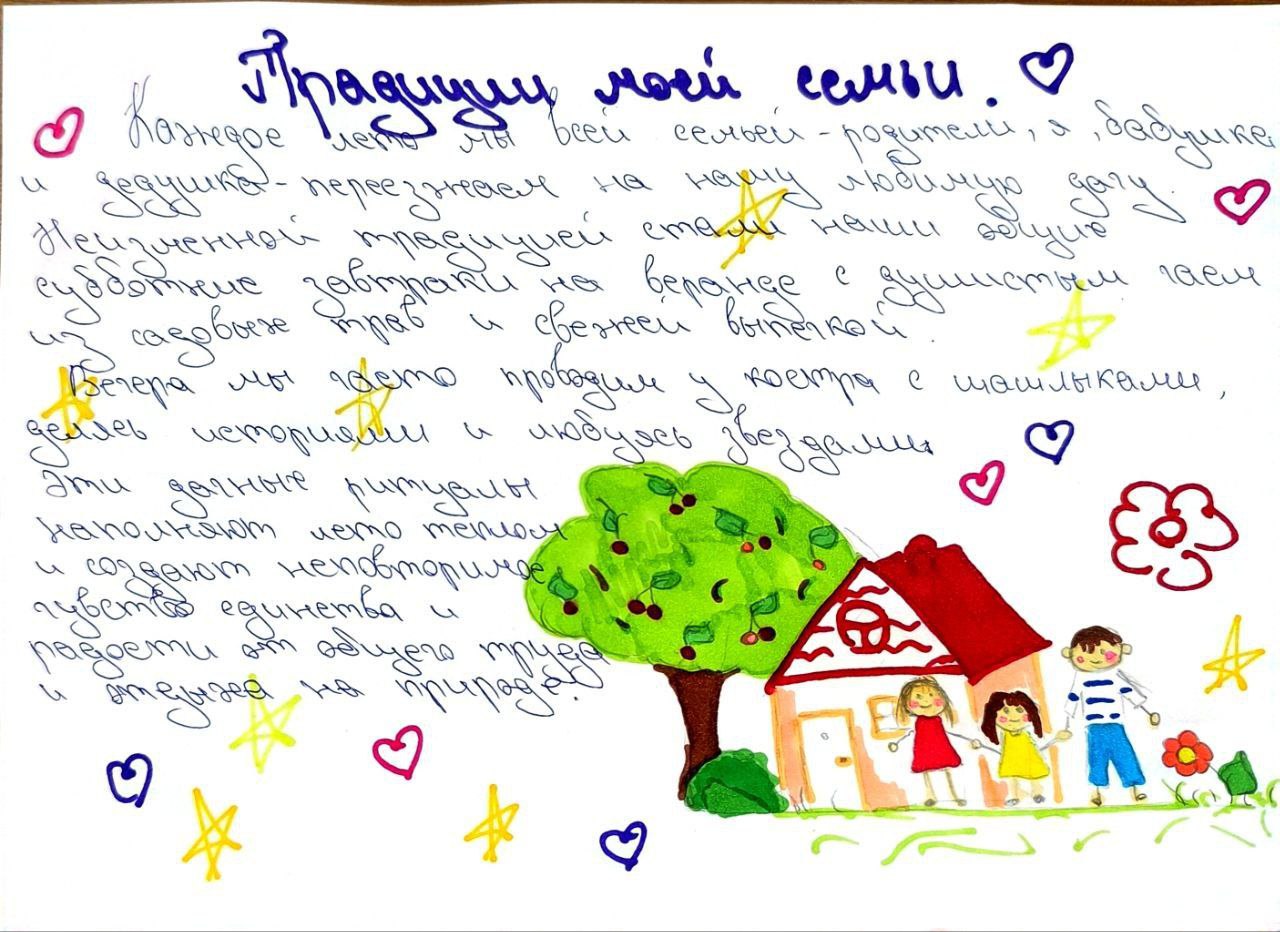 Традиции моей семьи.
Каждое лето мы всей семьей - родители, я, бабушка
и дедушка - переезжаем на нашу любимую дачу.
Неизменной традицией стали наши общие
субботние завтраки на веранде с душистым чаем
из садовых трав и свежей выпечкой.
Вечера мы часто проводим у костра с шашлыками,
делясь историями и любуясь звездами.
Эти дачные ритуалы
наполняют лето теплом
и создают неповторимое
чувство единства и
радости от общего труда
и отдыха на природе.